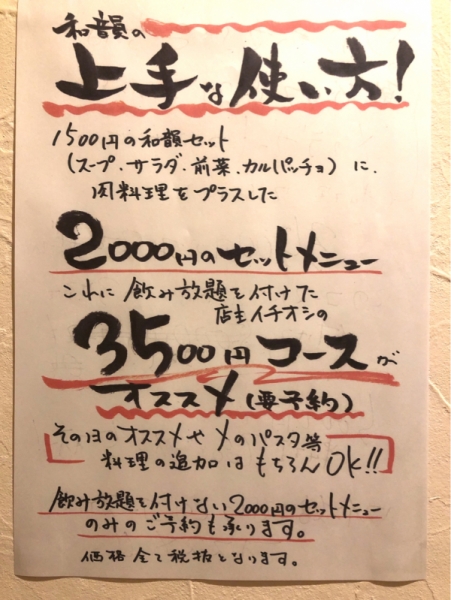 和韻の
上手な使い方!
1500円の和韻セット
(スープ、サラダ、前菜、カルパッチョ)に、
肉料理をプラスした
2000円のセットメニュー
これに飲み放題を付けた
店主イチオシの
3500円コースが
オススメ(要予約)
その日のオススメや〆のパスタ等
料理の追加はもちろんOK!!
飲み放題を付けない2000円のセットメニュー
のみのご予約も承ります。
価格全て税抜となります。